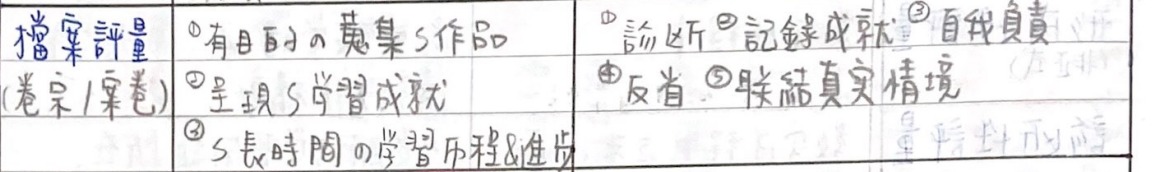 檔案評量
(卷宗/案卷)
①有目的の蒐集S作品
②呈現S学習成就
③S長時間の学習历程&進步
①診断②記錄成就③自我負責
④反省⑤联結真实情境